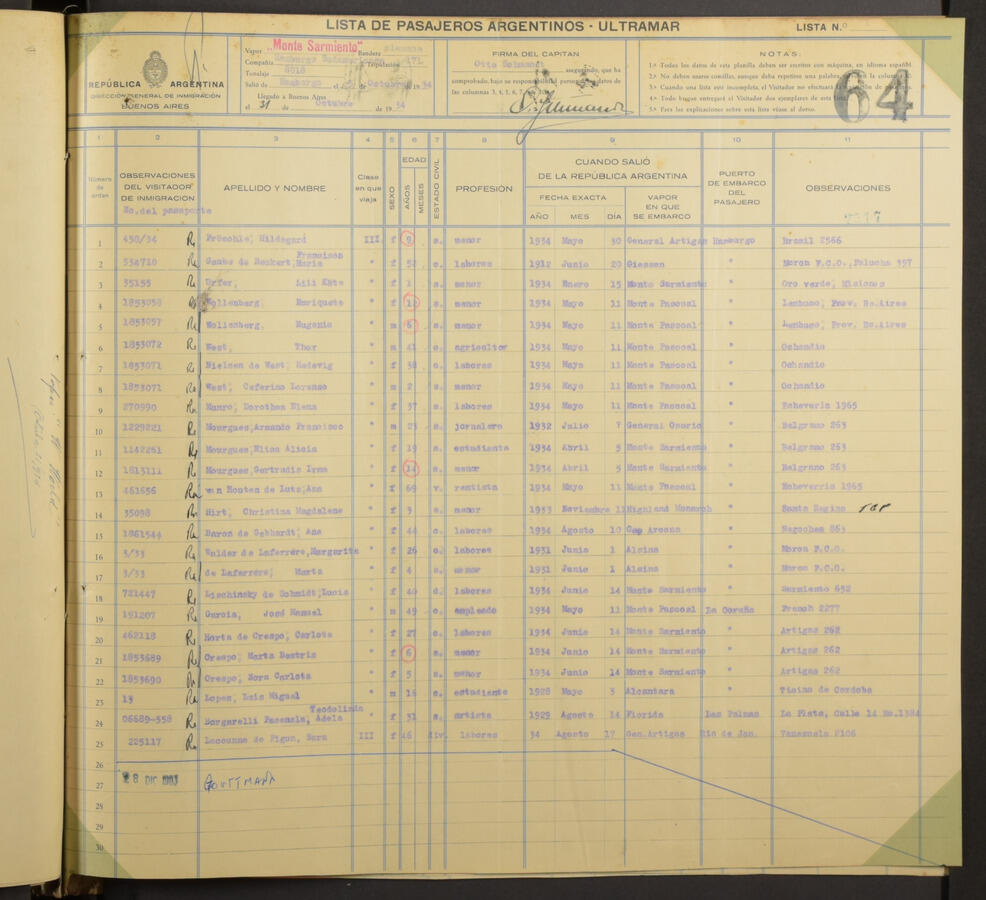 LISTA DE PASAJEROS ARGENTINOS - ULTRAMAR
LISTA N.º
64
REPÚBLICA ARGENTINA
DIRECCIÓN GENERAL DE INMIGRACIÓN
BUENOS AIRES
Vapor "Monte Sarmiento" Bandera
Compañía Tripulación 171
Tonelaje
Salió de Hamburgo el de Octubre de 1934
Llegado a Buenos Aires
el 31 de Octubre de 1934
FIRMA DEL CAPITAN
Otto asegurando, que ha
comprobado, bajo su responsabilidad datos de
las columnas 3, 4, 5, 6, 7,
NOTAS:
1.ª Todos los datos de esta planilla deben ser escritos con máquina, en idioma español
2.ª No deben usarse comillas, aunque deba repetirse una palabra, la columna 8.
3.ª Cuando una lista esté incompleta, el Visitador no efectuará de pasajeros.
4.ª Todo buque entregará al Visitador dos ejemplares de esta
5.ª Para las explicaciones sobre esta lista véase al dorso.
1 2 3 4 5 6 7 8 9 10 11
Número de orden
OBSERVACIONES DEL VISITADOR DE INMIGRACION
No. del pasaporte
APELLIDO Y NOMBRE
Clase en que viaja
SEXO
EDAD
AÑOS
MESES
ESTADO CIVIL
PROFESIÓN
CUANDO SALIÓ
DE LA REPÚBLICA ARGENTINA
FECHA EXACTA
AÑO MES DÍA
VAPOR EN QUE SE EMBARCO
PUERTO DE EMBARCO DEL PASAJERO
OBSERVACIONES
1 450/34 Fröschle, Hildegard III f 9 s. menor 1934 Mayo 30 General Artigas Hamburgo Brasil 2566
2 534710 Gante de Renkert, Francisca Maria " f 52 c. labores 1912 Junio 20 Giessen " Moron F.C.O., Palucha 357
3 35155 Urfer, Lili Käte " f 1 s. menor 1934 Enero 15 Monte Sarmiento " Oro verde, Misiones
4 1853058 Wollenberg, Enriqueta " f 12 s. menor 1934 Mayo 11 Monte Pascoal " Prov. Bs.Aires
5 1853057 Wollenberg, Eugenio " m 6 s. menor 1934 Mayo 11 Monte Pascoal " Prov. Bs.Aires
6 1853072 West, Thor " m 41 c. agricultor 1934 Mayo 11 Monte Pascoal " Ochandio
7 1853071 Nielsen de West, Hedevig " f 38 c. labores 1934 Mayo 11 Monte Pascoal " Ochandio
8 1853071 West, Ceferino Lorenzo " m 2 s. menor 1934 Mayo 11 Monte Pascoal " Ochandio
9 270990 Munro, Dorothea Elena " f 37 s. labores 1934 Mayo 11 Monte Pascoal " Echeveria 1965
10 1229221 Mourgues, Armando Francisco " m 23 s. jornalero 1932 Julio 7 General Osorio " Belgrano 263
11 1142261 Mourgues, Elisa Alicia " f 19 s. estudiante 1934 Abril 5 Monte Sarmiento " Belgrano 263
12 1813111 Mourgues, Gertrudis Irma " f 14 s. menor 1934 Abril 5 Monte Sarmiento " Belgrano 263
13 461656 van Houten de Lutz, Ana " f 69 v. rentista 1934 Mayo 11 Monte Pascoal " Echeverria 1965
14 35098 Hirt, Christina Magdalene " f 3 s. menor 1933 Noviembre 11 Highland Monarch " Santo Regino
15 1861544 Baron de Gebhardt, Ana " f 44 c. labores 1934 Agosto 10 Cap Arcona " Necochea 863
16 3/33 Walder de Laferrére, Margarita " f 26 c. labores 1931 Junio 1 Alsina " Moron F.C.O.
17 3/33 de Laferrére, Marta " f 4 s. menor 1931 Junio 1 Alsina " Moron F.C.O.
18 721447 Lischinsky de Schmidt, Lucia " f 40 d. labores 1934 Junio 14 Monte Sarmiento " Sarmiento 632
19 191207 Garcia, José Manuel " m 49 c. empleado 1934 Mayo 11 Monte Pascoal La Coruña French 2277
20 462118 Horta de Crespo, Carlota " f 27 c. labores 1934 Junio 14 Monte Sarmiento " Artigas 262
21 1853689 Crespo, Marta Beatriz " f 6 s. menor 1934 Junio 14 Monte Sarmiento " Artigas 262
22 1853690 Crespo, Nora Carlota " f 5 s. menor 1934 Junio 14 Monte Sarmiento " Artigas 262
23 13 Lopez, Luis Miguel " m 16 s. estudiante 1928 Mayo 3 Alcantara " Ticino de Cordoba
24 06689-558 Borgarelli Pasenals, Teodolinda Adela " f 31 s. artista 1929 Agosto 14 Florida Las Palmas La Plata, Calle 14 No.1384
25 225117 Lacounne de Pigun, Sara III f 46 div. labores 34 Agosto 17 Gen.Artigas Rio de Jan. Venezuela 2106
26
27 28 DIC 1983 GOUTTMANN
28
29
30